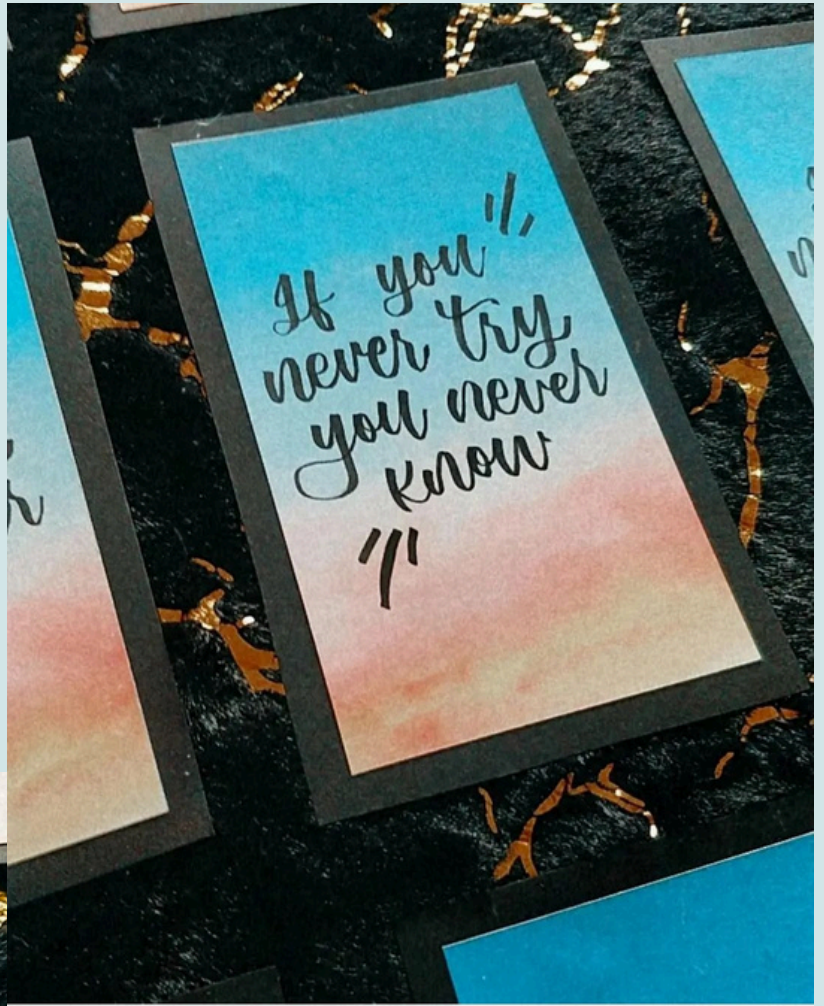 If you
never try
you never
know